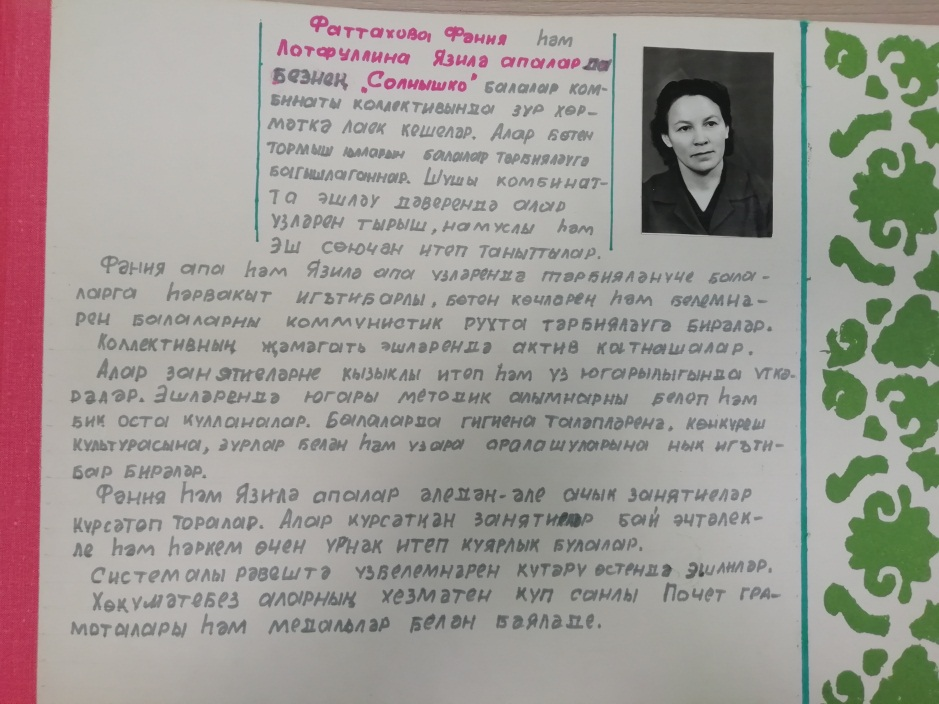 Фаттахова Фәния һәм
Лотфуллина Язилә апалар да
безнең „Солнышко" балалар ком-
бинаты коллективында зур хөр-
мәткә лаек кешеләр. Алар бөтен
тормыш юлларын балалар тәрбияләүгә
багишлаганнар. Шушы комбинат-
та эшләү дәверендә алар
үзләрен тырыш, намуслы һәм
эш сөючән итеп таныттылар.
Фәния апа һәм Язилә апа үзләрендә тәрбияләнүче бала-
ларга һәрвакыт игътибарлы, бөтен көчләрен һәм белемнә-
рен балаларны коммунистик рухта тәрбияләүгә бирәләр.
Коллективның җәмәгать эшләрендә актив катнашалар.
Алар занятиеләрне кызыклы итеп һәм үз югарылыгында үткә-
рәләр. Эшләрендә югары методик алымнарны белеп һәм
бик оста кулланалар. Балаларда гигиена таләпләренә, көнкүреш
культурасына, зурлар белән һәм үзара аралашуларына нык игъти-
бар бирәләр.
Фәния һәм Язилә апалар әледән-әле ачык занятиеләр
күрсәтәп торалар. Алар күрсәткән занятиеләр бай эчтәлек-
ле һәм һәркем өчен үрнәк итеп куярлык булалар.
Системалы рәвештә үзбелемнәрен күтәрү өстендә эшлиләр.
Хөкүмәтебез аларның хезмәтен күп санлы Почет гра-
моталары һәм медальләр белән бәяләде.